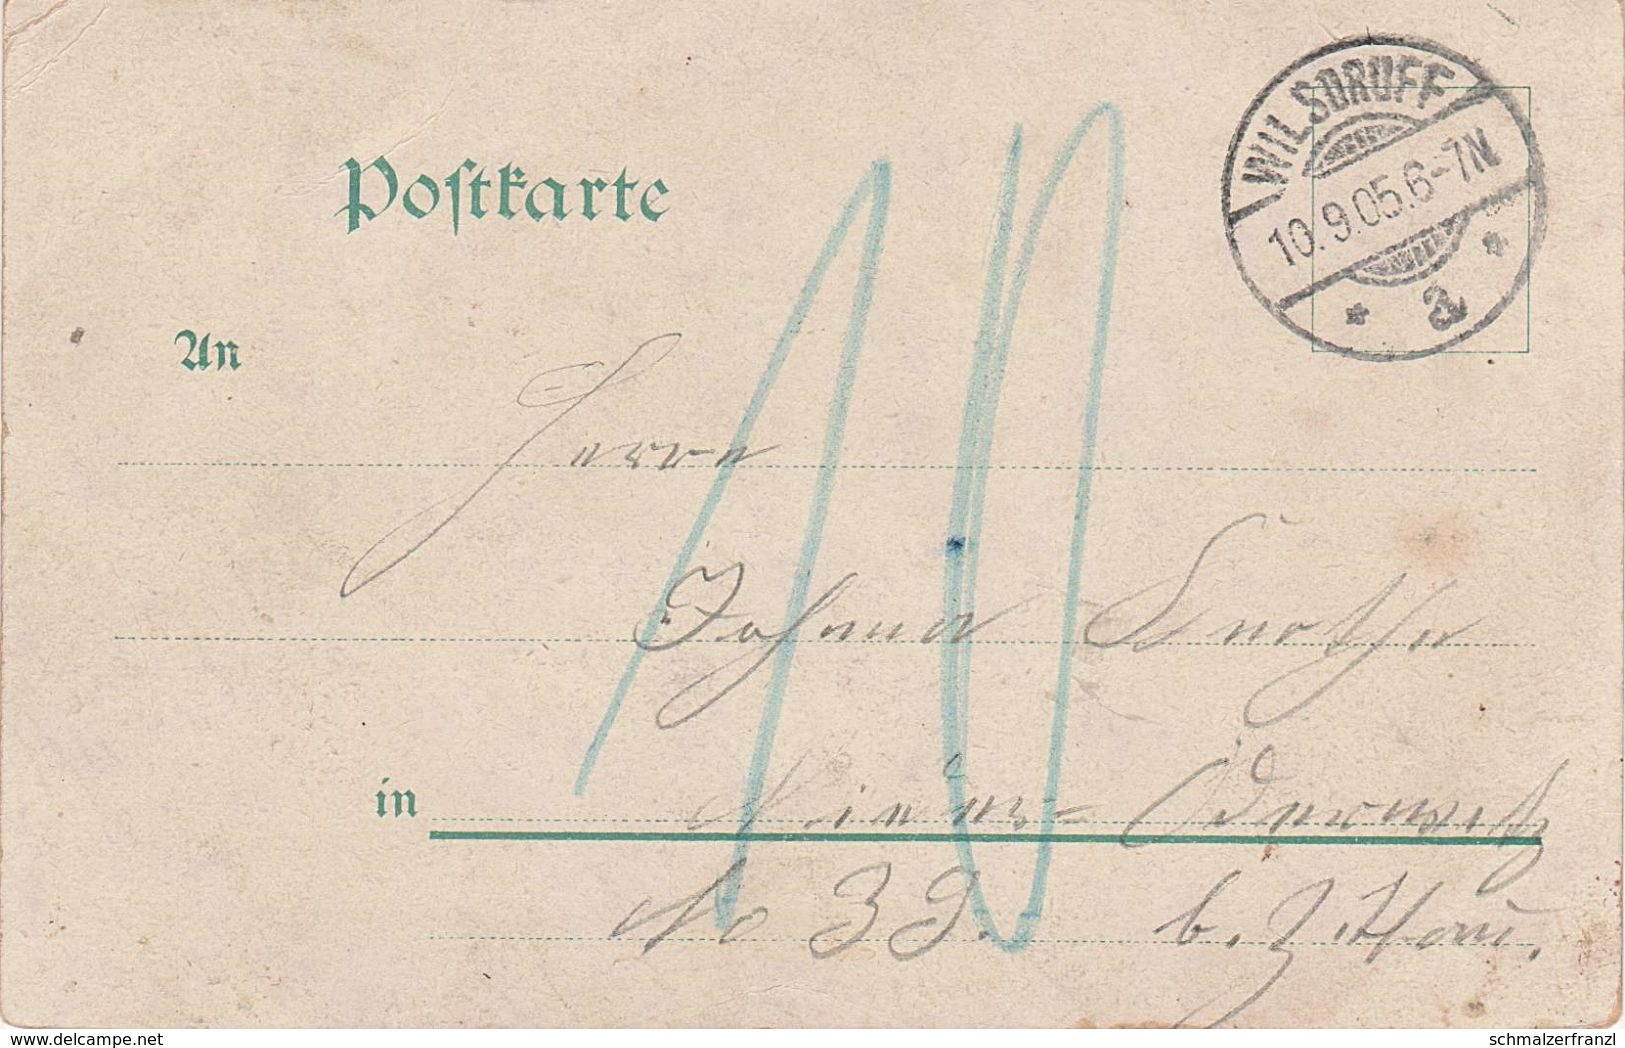 WILSDRUFF
10.9.05.6-7N
* a *
Postkarte
10
An
Herrn
Knothe
in Nieder-Oderwitz
No 39. b. Zittau.
www.delcampe.net
schmalzerfranzl